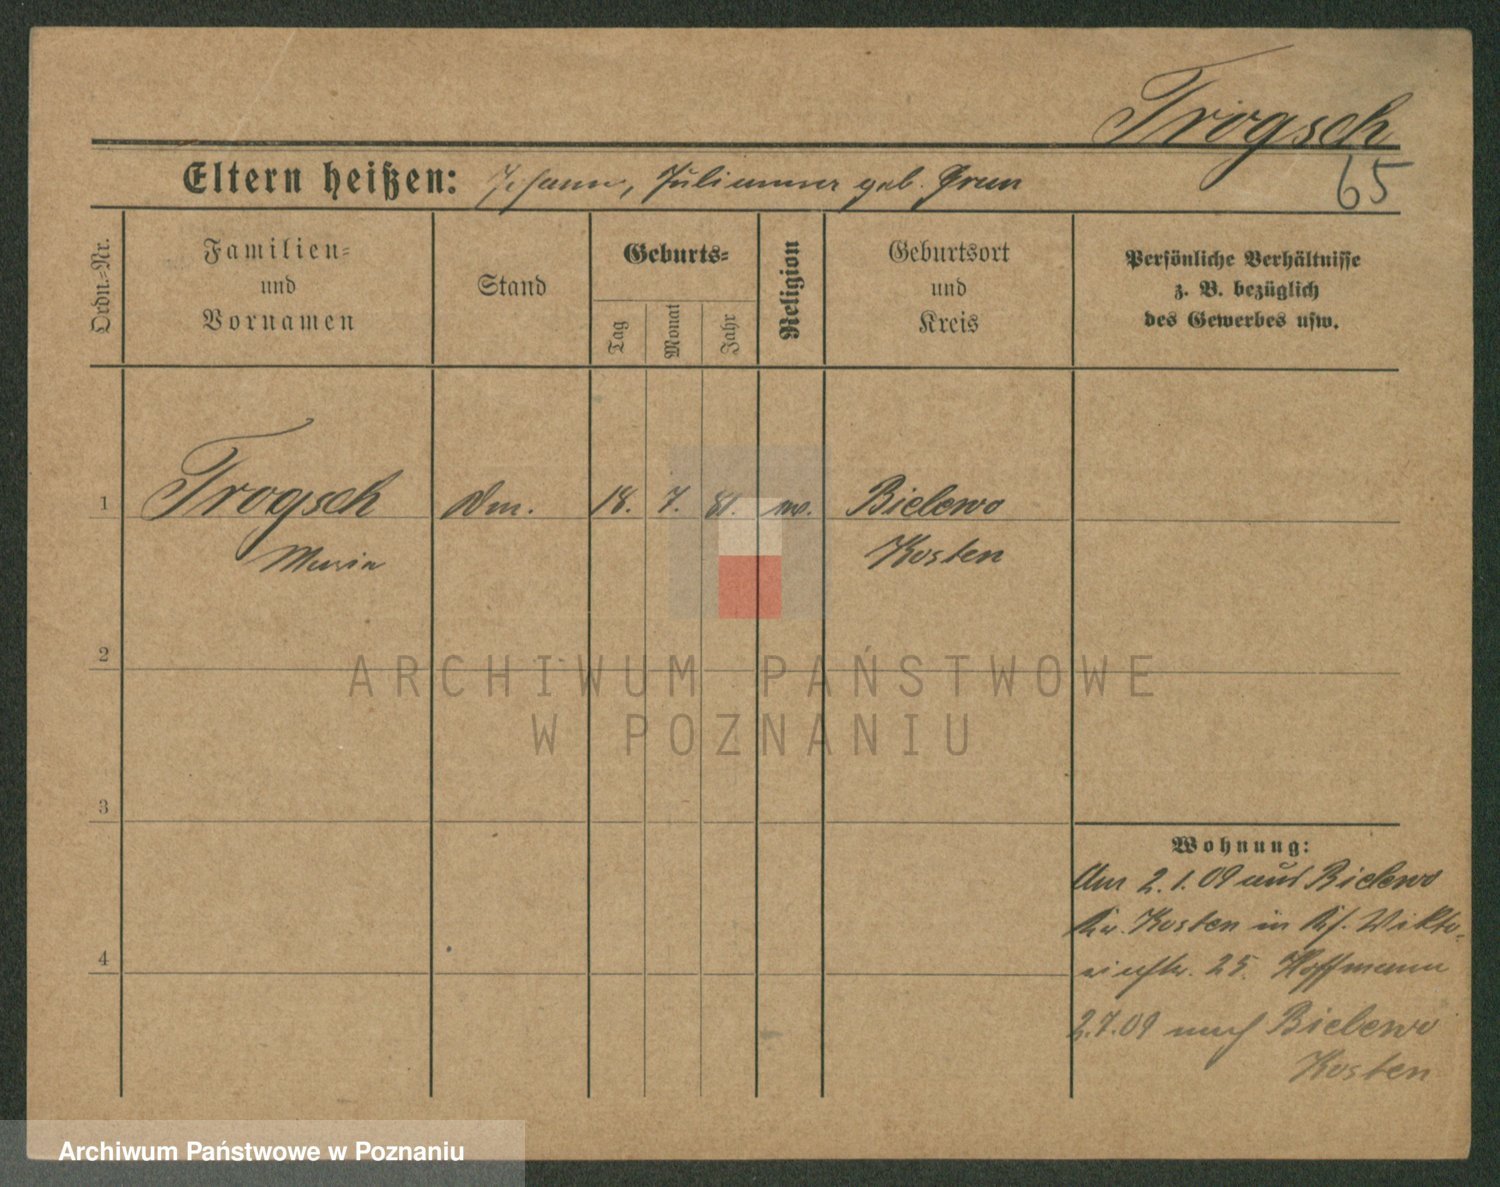 Trogsch
65
Eltern heißen: Johann, Julianna geb. Grun
Ordn.-Nr.
Familien-
und
Vornamen
Stand
Geburts-
Tag
Monat
Jahr
Religion
Geburtsort
und
Kreis
Persönliche Verhältnisse
z. B. bezüglich
des Gewerbes usw.
1 Trogsch 18. 7. 81. Bielewo
Maria Kosten
2
3
4
ARCHIWUM PAŃSTWOWE
W POZNANIU
Wohnung:
Am 2.1.09 aus Bielewo
Kr. Kosten in Wikto-
riastr. 25. Hoffmann
2.7.09 nach Bielewo
Kosten
Archiwum Państwowe w Poznaniu